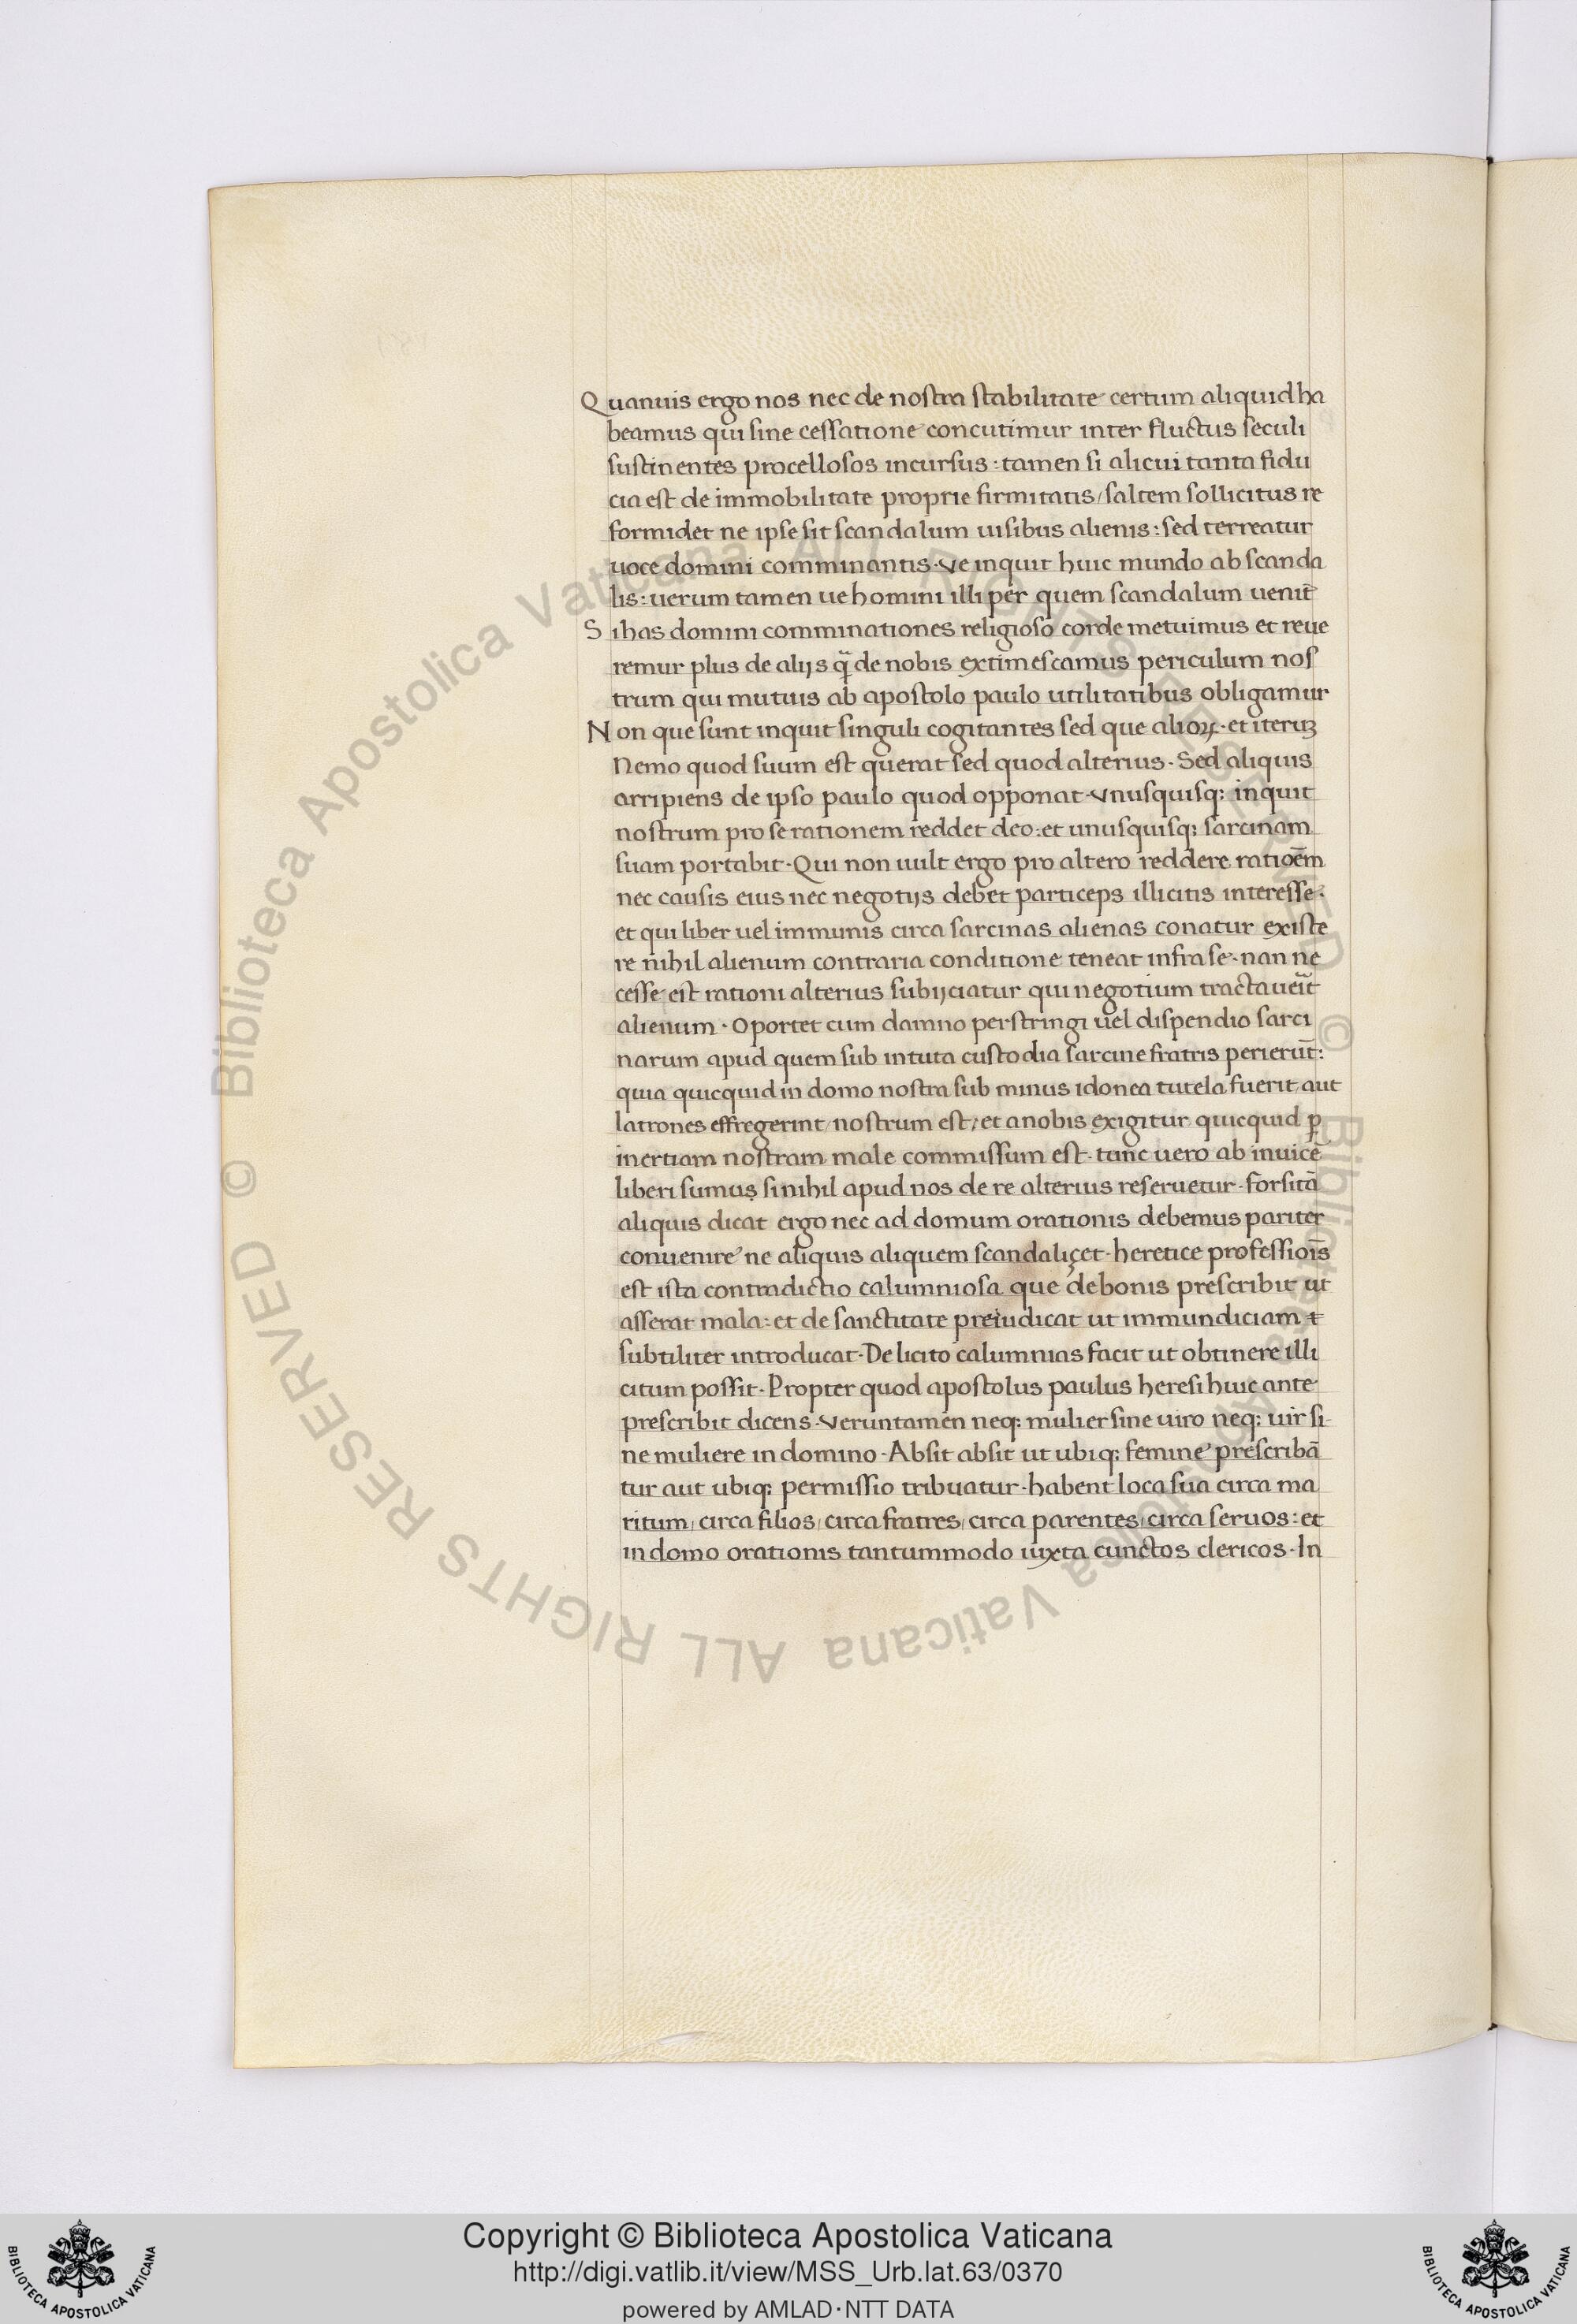 Quanuis ergo nos nec de nostra stabilitate certum aliquid ha
beamus qui sine cessatione concutimur inter fluctus seculi
sustinentes procellosos incursus: tamen si alicui tanta fidu
cia est de immobilitate proprie firmitatis/ saltem sollicitus re
formidet ne ipse sit scandalum uisibus alienis: sed terreatur
uoce domini comminantis. Ve inquit huic mundo ab scanda
lis: uerum tamen ue homini illi per quem scandalum uenit̄
Si has domini comminationes religioso corde metuimus et reue
remur plus de alijs q̃ de nobis extimescamus periculum nos
trum qui mutuis ab apostolo paulo utilitatibus obligamur
Non que sunt inquit singuli cogitantes sed que alioꝝ. et iteruꝫ
Nemo quod suum est querat sed quod alterius. Sed aliquis
arripiens de ipso paulo quod opponat. Vnusquisq; inquit
nostrum pro se rationem reddet deo: et unusquisq; sarcinam
suam portabit. Qui non uult ergo pro altero reddere ratioēm
nec causis eius nec negotijs debet particeps illicitis interesse.
et qui liber uel immunis circa sarcinas alienas conatur existe
re nihil alienum contraria conditione teneat infra se. nan ne
cesse est rationi alterius subijciatur qui negotium tractaueit̄
alienum. Oportet cum damno perstringi uel dispendio sarci
narum apud quem sub intuta custodia sarcine fratris perierūt:
quia quicquid in domo nostra sub minus idonea tutela fuerit aut
latrones effregerint/ nostrum est; et anobis exigitur quicquid ꝑ
inertiam nostram male commissum est. tunc uero ab inuicē
liberi sumus si nihil apud nos de re alterius reseruetur. forsitā
aliquis dicat ergo nec ad domum orationis debemus pariter
conuenire ne aliquis aliquem scandaliçet. heretice professiois̄
est ista contradictio calumniosa que de bonis prescribit ut
asserat mala: et de sanctitate preiudicat ut immundiciam
subtiliter introducat. De licito calumnias facit ut obtinere illi
citum possit. Propter quod apostolus paulus heresi huic ante
prescribit dicens. Veruntamen neq; mulier sine uiro neq; uir si
ne muliere in domino. Absit absit ut ubiq; femine prescribā
tur aut ubiq; permissio tribuatur. habent loca sua circa ma
ritum/ circa filios/ circa fratres/ circa parentes/ circa seruos: et
in domo orationis tantummodo iuxta cunctos clericos. In
Biblioteca Apostolica Vaticana ALL RIGHTS RESERVED ©
Biblioteca Apostolica Vaticana ALL RIGHTS RESERVED ©
Copyright © Biblioteca Apostolica Vaticana
http://digi.vatlib.it/view/MSS_Urb.lat.63/0370
powered by AMLAD·NTT DATA
BIBLIOTECA APOSTOLICA VATICANA
BIBLIOTECA APOSTOLICA VATICANA